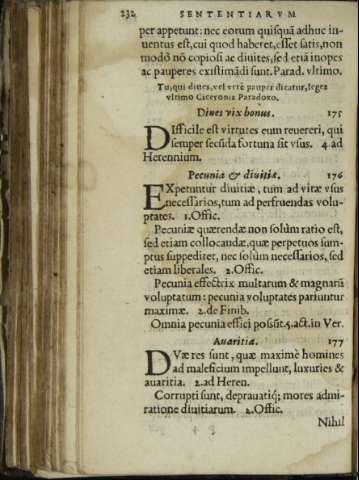 232 SENTENTIARVM
per appetunt: nec eorum quisquā adhuc in-
uentus est, cui quod haberet, esset satis, non
modò nō copiosi ac diuites, sed etiā inopes
ac pauperes existimādi sunt. Parad. vltimo.
Tu, qui diues, vel verè pauper dicatur, leges
vltimo Ciceronis Paradoxo.
Diues vix bonus. 175
DIfficile est virtutes eum reuereri, qui
semper secūda fortuna sit vsus. 4. ad
Herennium.
Pecunia & diuitiæ. 176
EXpetuntur diuitiæ, tum ad vitæ vsus
necessarios, tum ad perfruendas volu-
ptates. 1. Offic.
Pecuniæ quærendæ non solùm ratio est,
sed etiam collocandæ, quæ perpetuos sum-
ptus suppeditet, nec solùm necessarios, sed
etiam liberales. 2. Offic.
Pecunia effectrix multarum & magnarū
voluptatum: pecunia voluptates pariuntur
maximæ. 2. de Finib.
Omnia pecunia effici possūt. 5. act. in Ver.
Auaritia. 177
DVæ res sunt, quæ maximè homines
ad maleficium impellunt, luxuries &
auaritia. 2. ad Heren.
Corrupti sunt, deprauatiq; mores admi-
ratione diuitiarum. 2. Offic.
Nihil